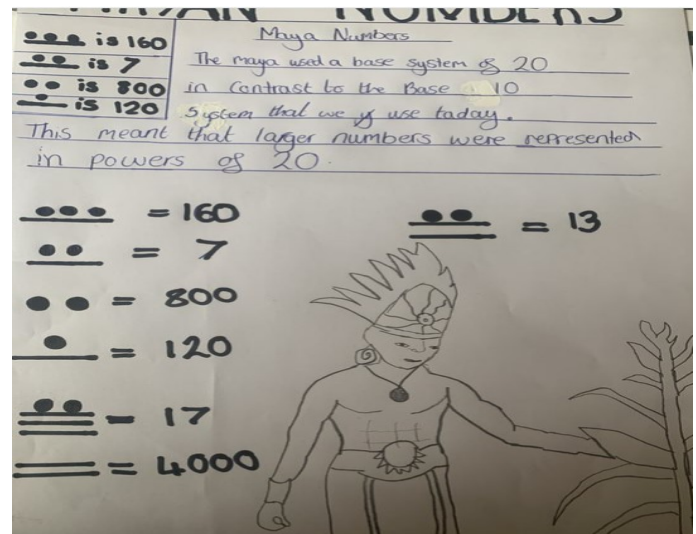 MAYAN NUMBERS
is 160
is 7
is 800
is 120
Maya Numbers
The maya used a base system of 20
in contrast to the Base 10
system that we use today.
This meant that larger numbers were represented
in powers of 20.
= 160
= 7
= 800
= 120
= 17
= 4000
= 13